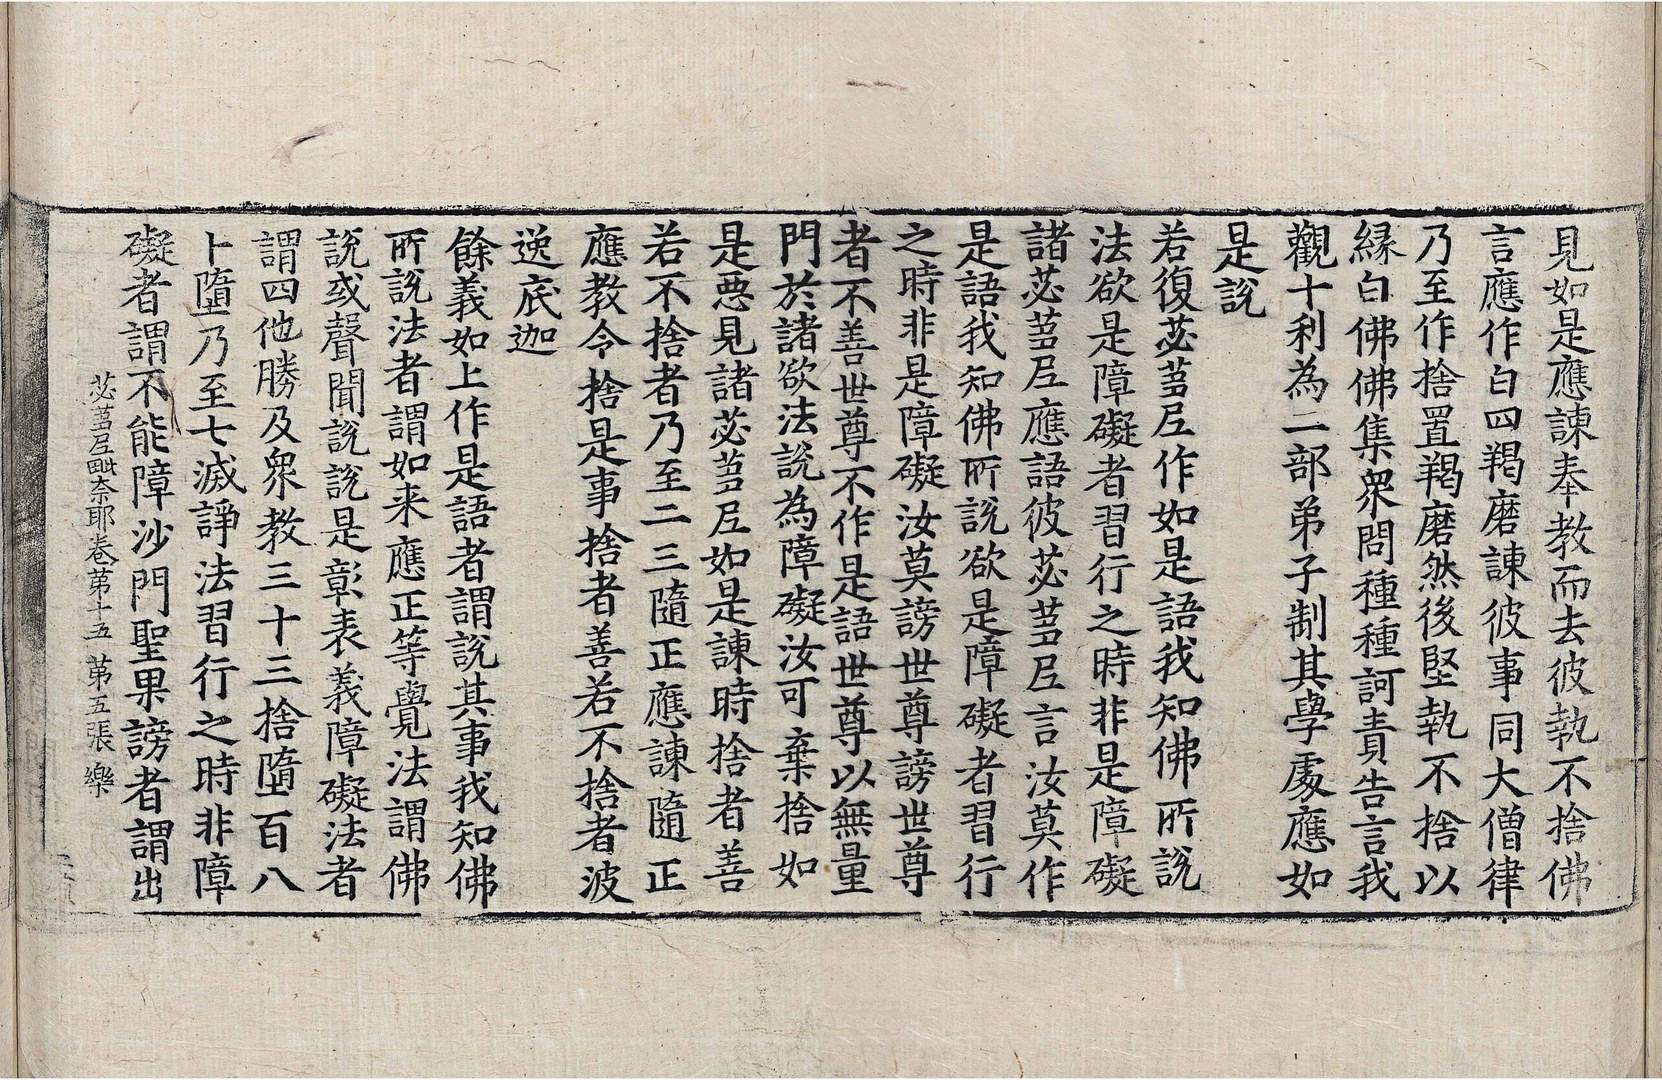 見如是應諫奉教而去彼執不捨佛
言應作白四羯磨諫彼事同大僧律
乃至作捨置羯磨然後堅執不捨以
緣白佛佛集衆問種種訶責告言我
觀十利為二部弟子制其學處應如
是說
若復苾芻尼作如是語我知佛所說
法欲是障礙者習行之時非是障礙
諸苾芻尼應語彼苾芻尼言汝莫作
是語我知佛所說欲是障礙者習行
之時非是障礙汝莫謗世尊謗世尊
者不善世尊不作是語世尊以無量
門於諸欲法說為障礙汝可棄捨如
是惡見諸苾芻尼如是諫時捨者善
若不捨者乃至二三隨正應諫隨正
應教令捨是事捨者善若不捨者波
逸底迦
餘義如上作是語者謂說其事我知佛
所說法者謂如来應正等覺法謂佛
說或聲聞說說是彰表義障礙法者
謂四他勝及衆教三十三捨墮百八
十墮乃至七滅諍法習行之時非障
礙者謂不能障沙門聖果謗者謂出
苾芻尼毗奈耶卷第十五 第五張 樂